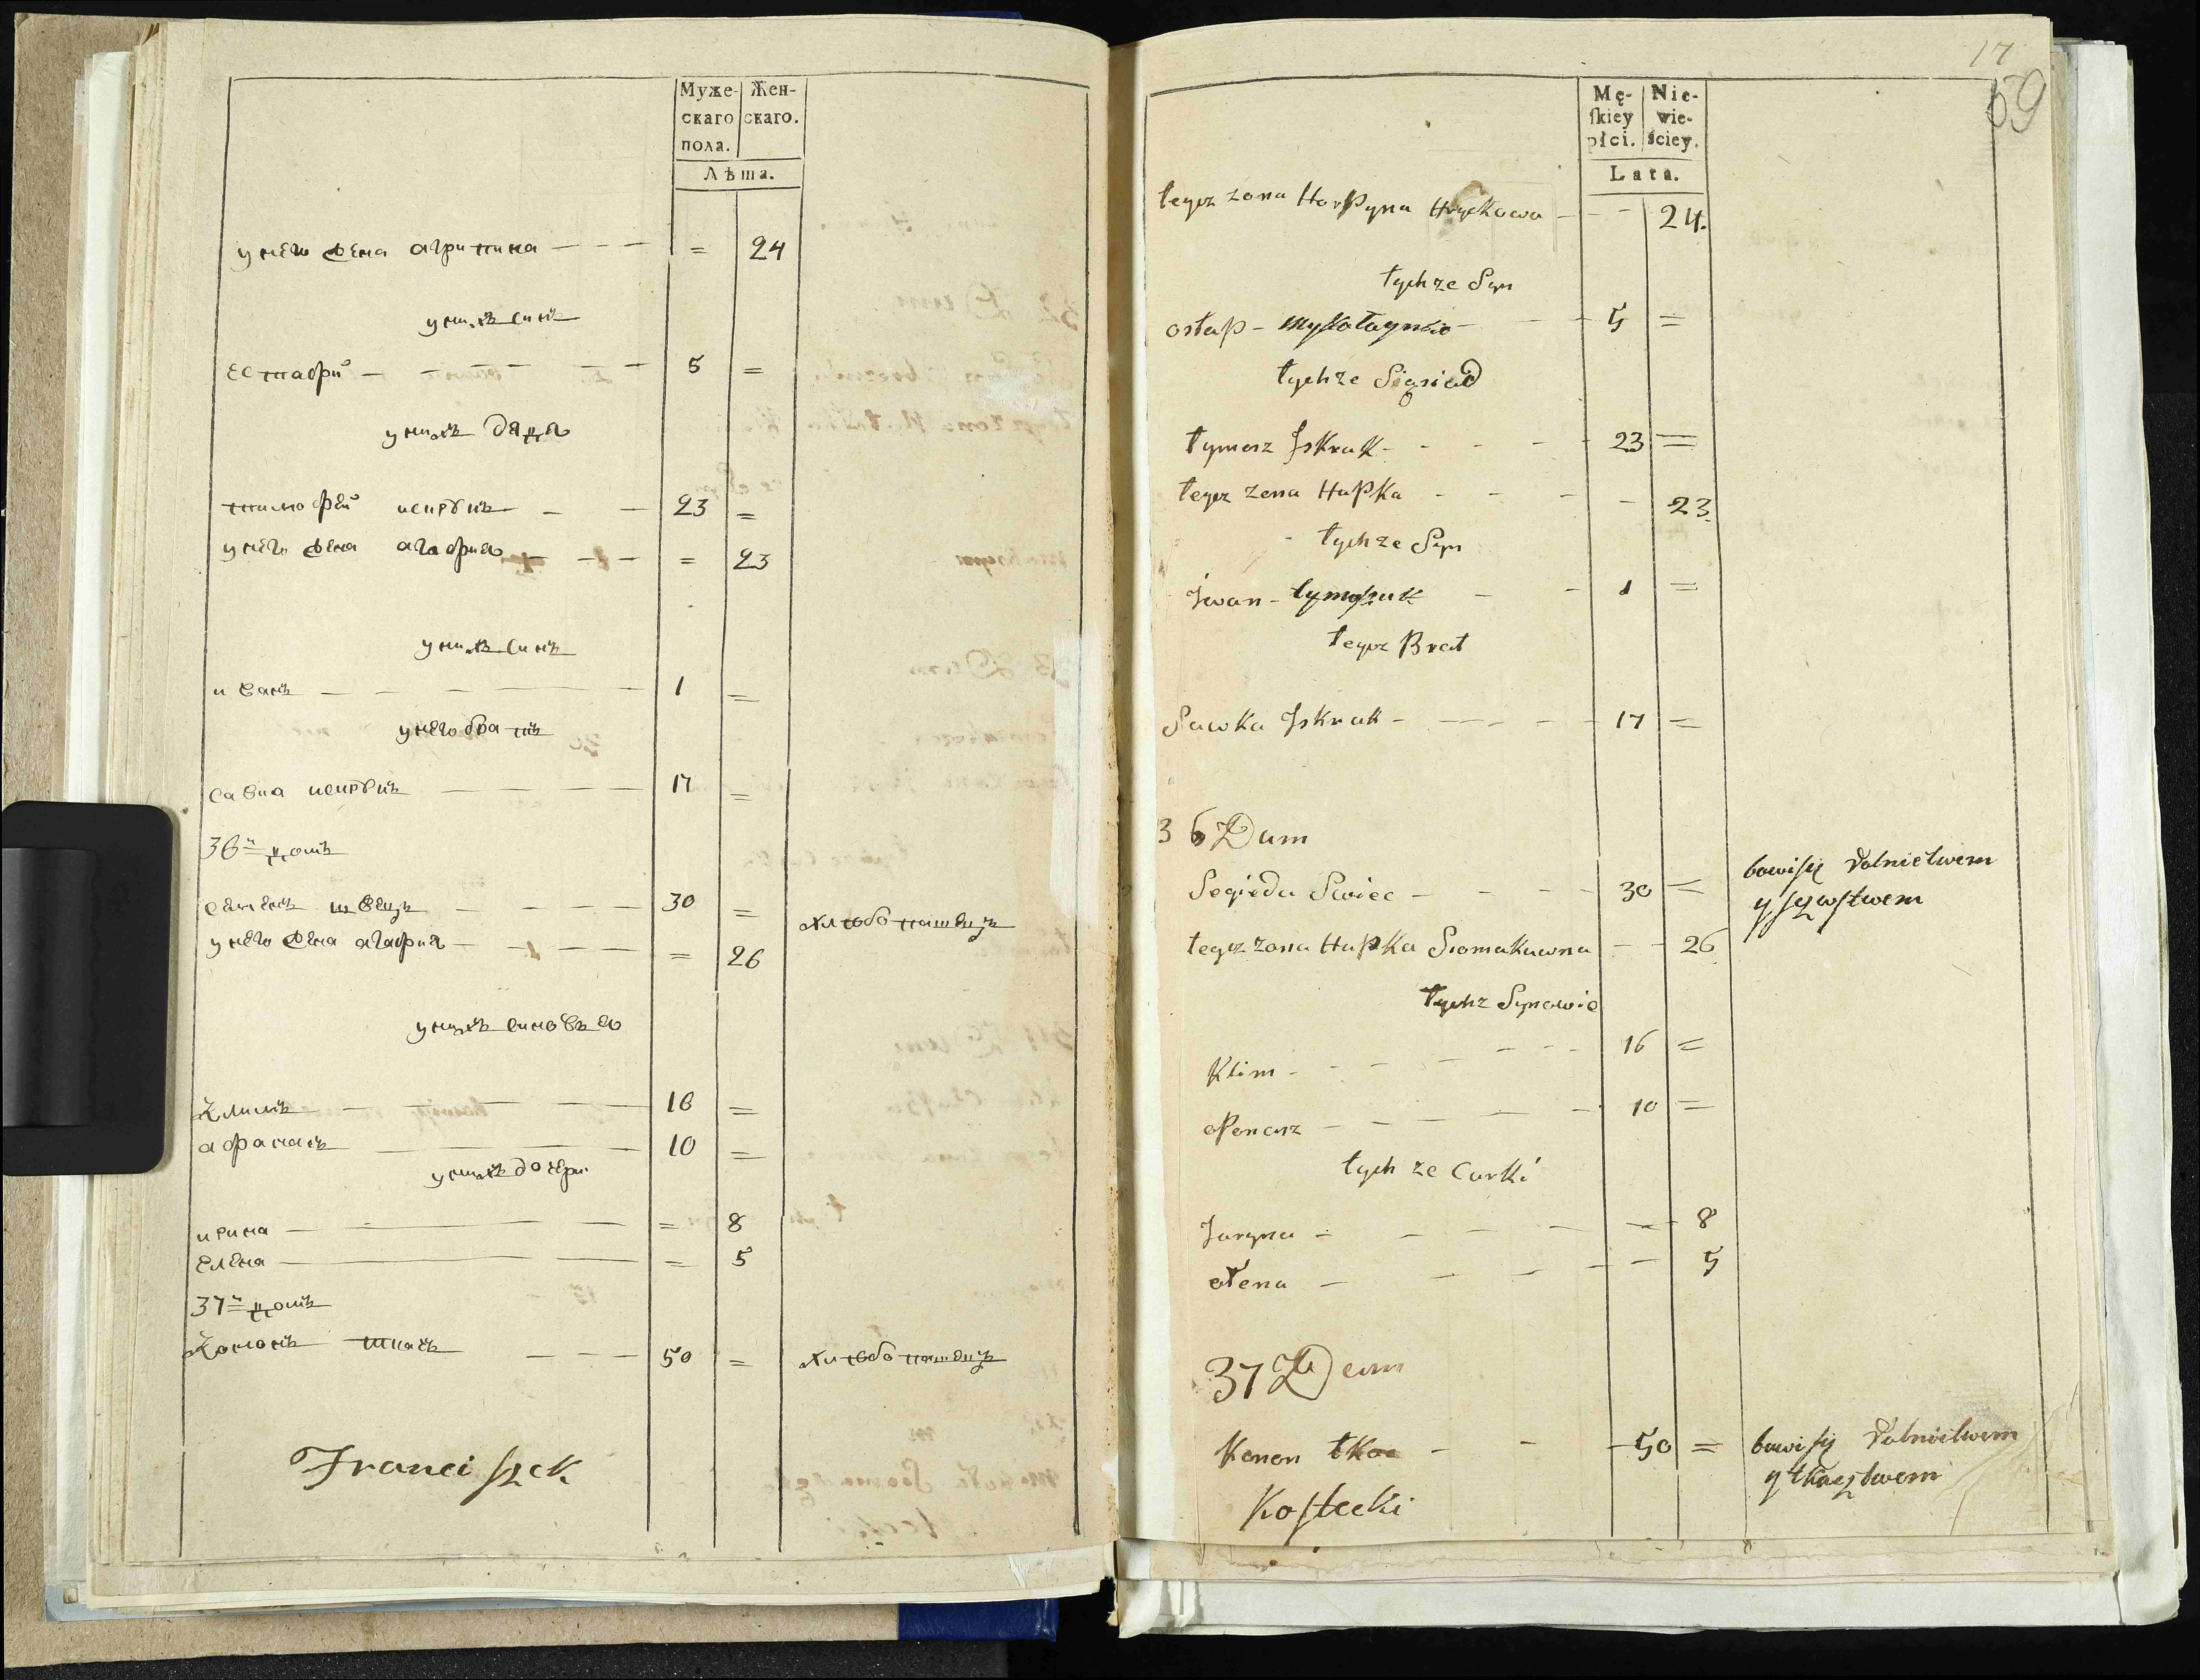 Муже-
скаго
пола.
Жен-
скаго.
Лѣта.
у него жена агрипина — — — = 24
у них синъ
естафий — — — — — 5 =
у них дядя
тимофей искрукъ — — 23 =
у него жена агафия — — — = 23
у них синъ
иванъ — — — — 1 =
у него братъ
савка искрукъ — — — — 17 =
36й домъ
семенъ швецъ — — — — 30 = хлѣбопашецъ
у него жена агафия — — — = 26
у нихъ синовья
Климъ — — — 16 =
афанасъ — — 10 =
у нихъ дочери
ирина — — — = 8
елена — — = 5
37й домъ
Кононъ ткачъ — — — 50 = хлѣбопашецъ
Franciszek
17
69
Mę-
skiey
płci.
Nie-
wie-
ściey.
Lata.
tegoz zona Horpyna Hryckowa — — — 24.
tychze Syn
ostap — Mykołayowic — — — 5 =
tychze Sąsiad
tymosz Jskruk — - - - 23 =
tegoz zona Hapka - - - — 23.
tychze Syn
Jwan — tymoszuk — - 1 =
tegoz Brat
Sawka Jskruk — — — — 17 =
36 Dum
Segieda Swiec — - - - 30 = bawi się Rolnictwem
y szewstwem
tegoz zona Hapka Siomakuwna — - 26
tychz Synowie
Klim — - - - - - - 16 =
oPanasz — — — — - 10 =
tychze Curki
Jaryna — - — — — - 8
ołena — — — — — 5
37 Dum
Konon tkac — - — 50 = bawi się Rolnictwem
y tkaęztwem
Kostecki